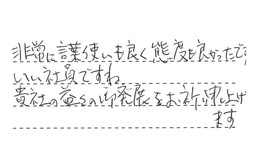 非常に言葉使いも良く態度も良かったです
いい社員ですね
貴社の益々の御発展をお祈り申し上げ
ます